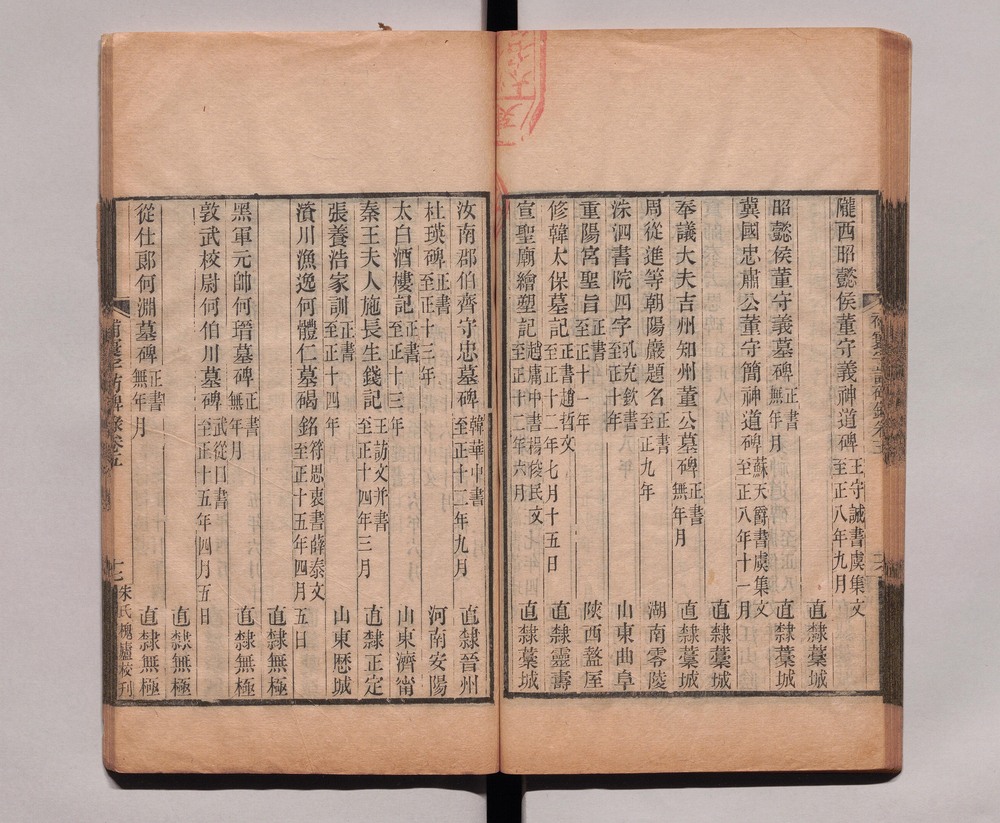 隴西昭懿侯董守義神道碑 王守誠書虞集文 至正八年九月
直隸藁城
昭懿侯董守義墓碑 正書 無年月
直隸藁城
冀國忠肅公董守簡神道碑 蘇天爵書虞集文 至正八年十一月
直隸藁城
奉議大夫吉州知州董公墓碑 正書 無年月
直隸藁城
周從進等朝陽巖題名 正書 至正九年
湖南零陵
洙泗書院四字 孔克欽書 至正十年
山東曲阜
重陽宮聖旨 正書 至正十一年
陝西盩厔
修韓太保墓記 正書趙哲文 至正十二年七月十五日
直隸靈壽
宣聖廟繪塑記 趙庸中書楊俊民文 至正十二年六月
直隸藁城
汝南郡伯齊守忠墓碑 韓華中書 至正十二年九月
直隸晉州
杜瑛碑 正書 至正十三年
河南安陽
太白酒樓記 正書 至正十三年
山東濟甯
秦王夫人施長生錢記 王訪文并書 至正十四年三月
直隸正定
張養浩家訓 正書 至正十四年
山東歷城
濆川漁逸何體仁墓碣銘 符思衷書薛泰文 至正十五年四月五日
直隸無極
黑軍元帥何瑨墓碑 正書 無年月
直隸無極
敦武校尉何伯川墓碑 武從口書 至正十五年四月五日
直隸無極
從仕郎何淵墓碑 正書 無年月
直隸無極
補寰宇訪碑錄卷五
十七
朱氏槐廬校刊